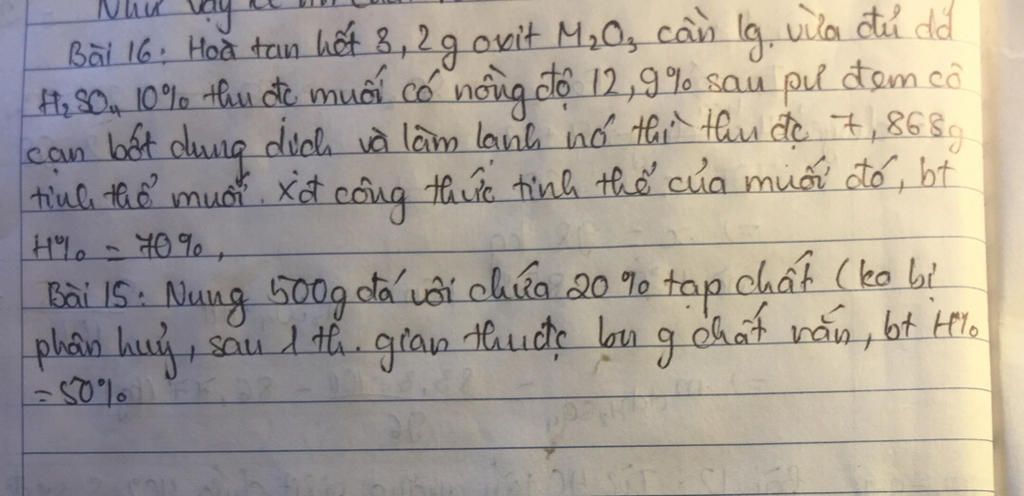 Như vậy
Bài 16: Hoà tan hết 3,2g oxit M₂O₃ cần lg. vừa đủ dd
H₂SO₄ 10% thu đc muối có nồng độ 12,9% sau pư đem cô
cạn bớt dung dịch và làm lạnh nó thì thu đc 7,868g
tinh thể muối. Xđ công thức tinh thể của muối đó, bt
H% = 70%,
Bài 15: Nung 500g đá vôi chứa 20% tạp chất (ko bị
phân huỷ, sau 1 th. gian thu đc bn g chất rắn, bt H%
= 50%